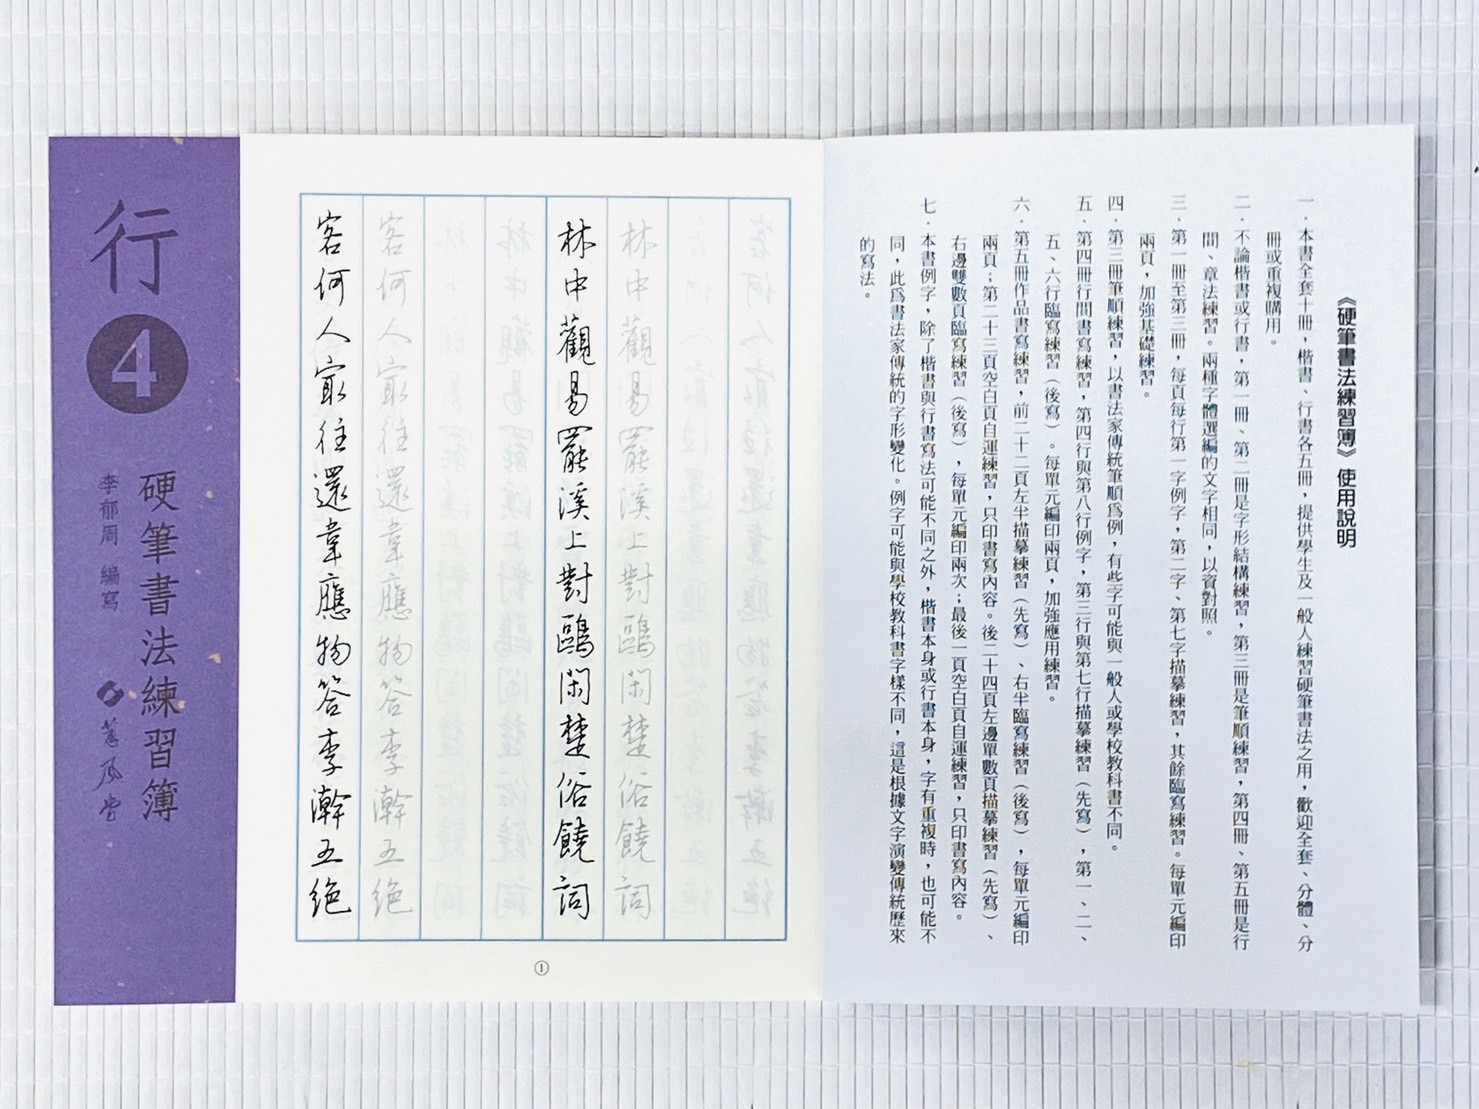 《硬筆書法練習簿》使用說明
一．本書全套十冊，楷書、行書各五冊，提供學生及一般人練習硬筆書法之用，歡迎全套、分體、分
冊或重複購用。
二．不論楷書或行書，第一冊、第二冊是字形結構練習，第三冊是筆順練習，第四冊、第五冊是行
間、章法練習。兩種字體選編的文字相同，以資對照。
三．第一冊至第三冊，每頁每行第一字例字，第二字、第七字描摹練習，其餘臨寫練習。每單元編印
兩頁，加強基礎練習。
四．第三冊筆順練習，以書法家傳統筆順為例，有些字可能與一般人或學校教科書不同。
五．第四冊行間書寫練習，第四行與第八行例字，第三行與第七行描摹練習（先寫），第一、二、
五、六行臨寫練習（後寫）。每單元編印兩頁，加強應用練習。
六．第五冊作品書寫練習，前二十二頁左半描摹練習（先寫）、右半臨寫練習（後寫），每單元編印
兩頁；第二十三頁空白頁自運練習，只印書寫內容。後二十四頁左邊單數頁描摹練習（先寫）、
右邊雙數頁臨寫練習（後寫），每單元編印兩次；最後一頁空白頁自運練習，只印書寫內容。
七．本書例字，除了楷書與行書寫法可能不同之外，楷書本身或行書本身，字有重複時，也可能不
同，此為書法家傳統的字形變化。例字可能與學校教科書字樣不同，這是根據文字演變傳統歷來
的寫法。
林中觀易罷溪上對鷗閑楚俗饒詞
林中觀易罷溪上對鷗閑楚俗饒詞
客何人最往還韋應物答李澣五絕
客何人最往還韋應物答李澣五絕
①
行
4
硬筆書法練習簿
李郁周 編寫
蕙風堂